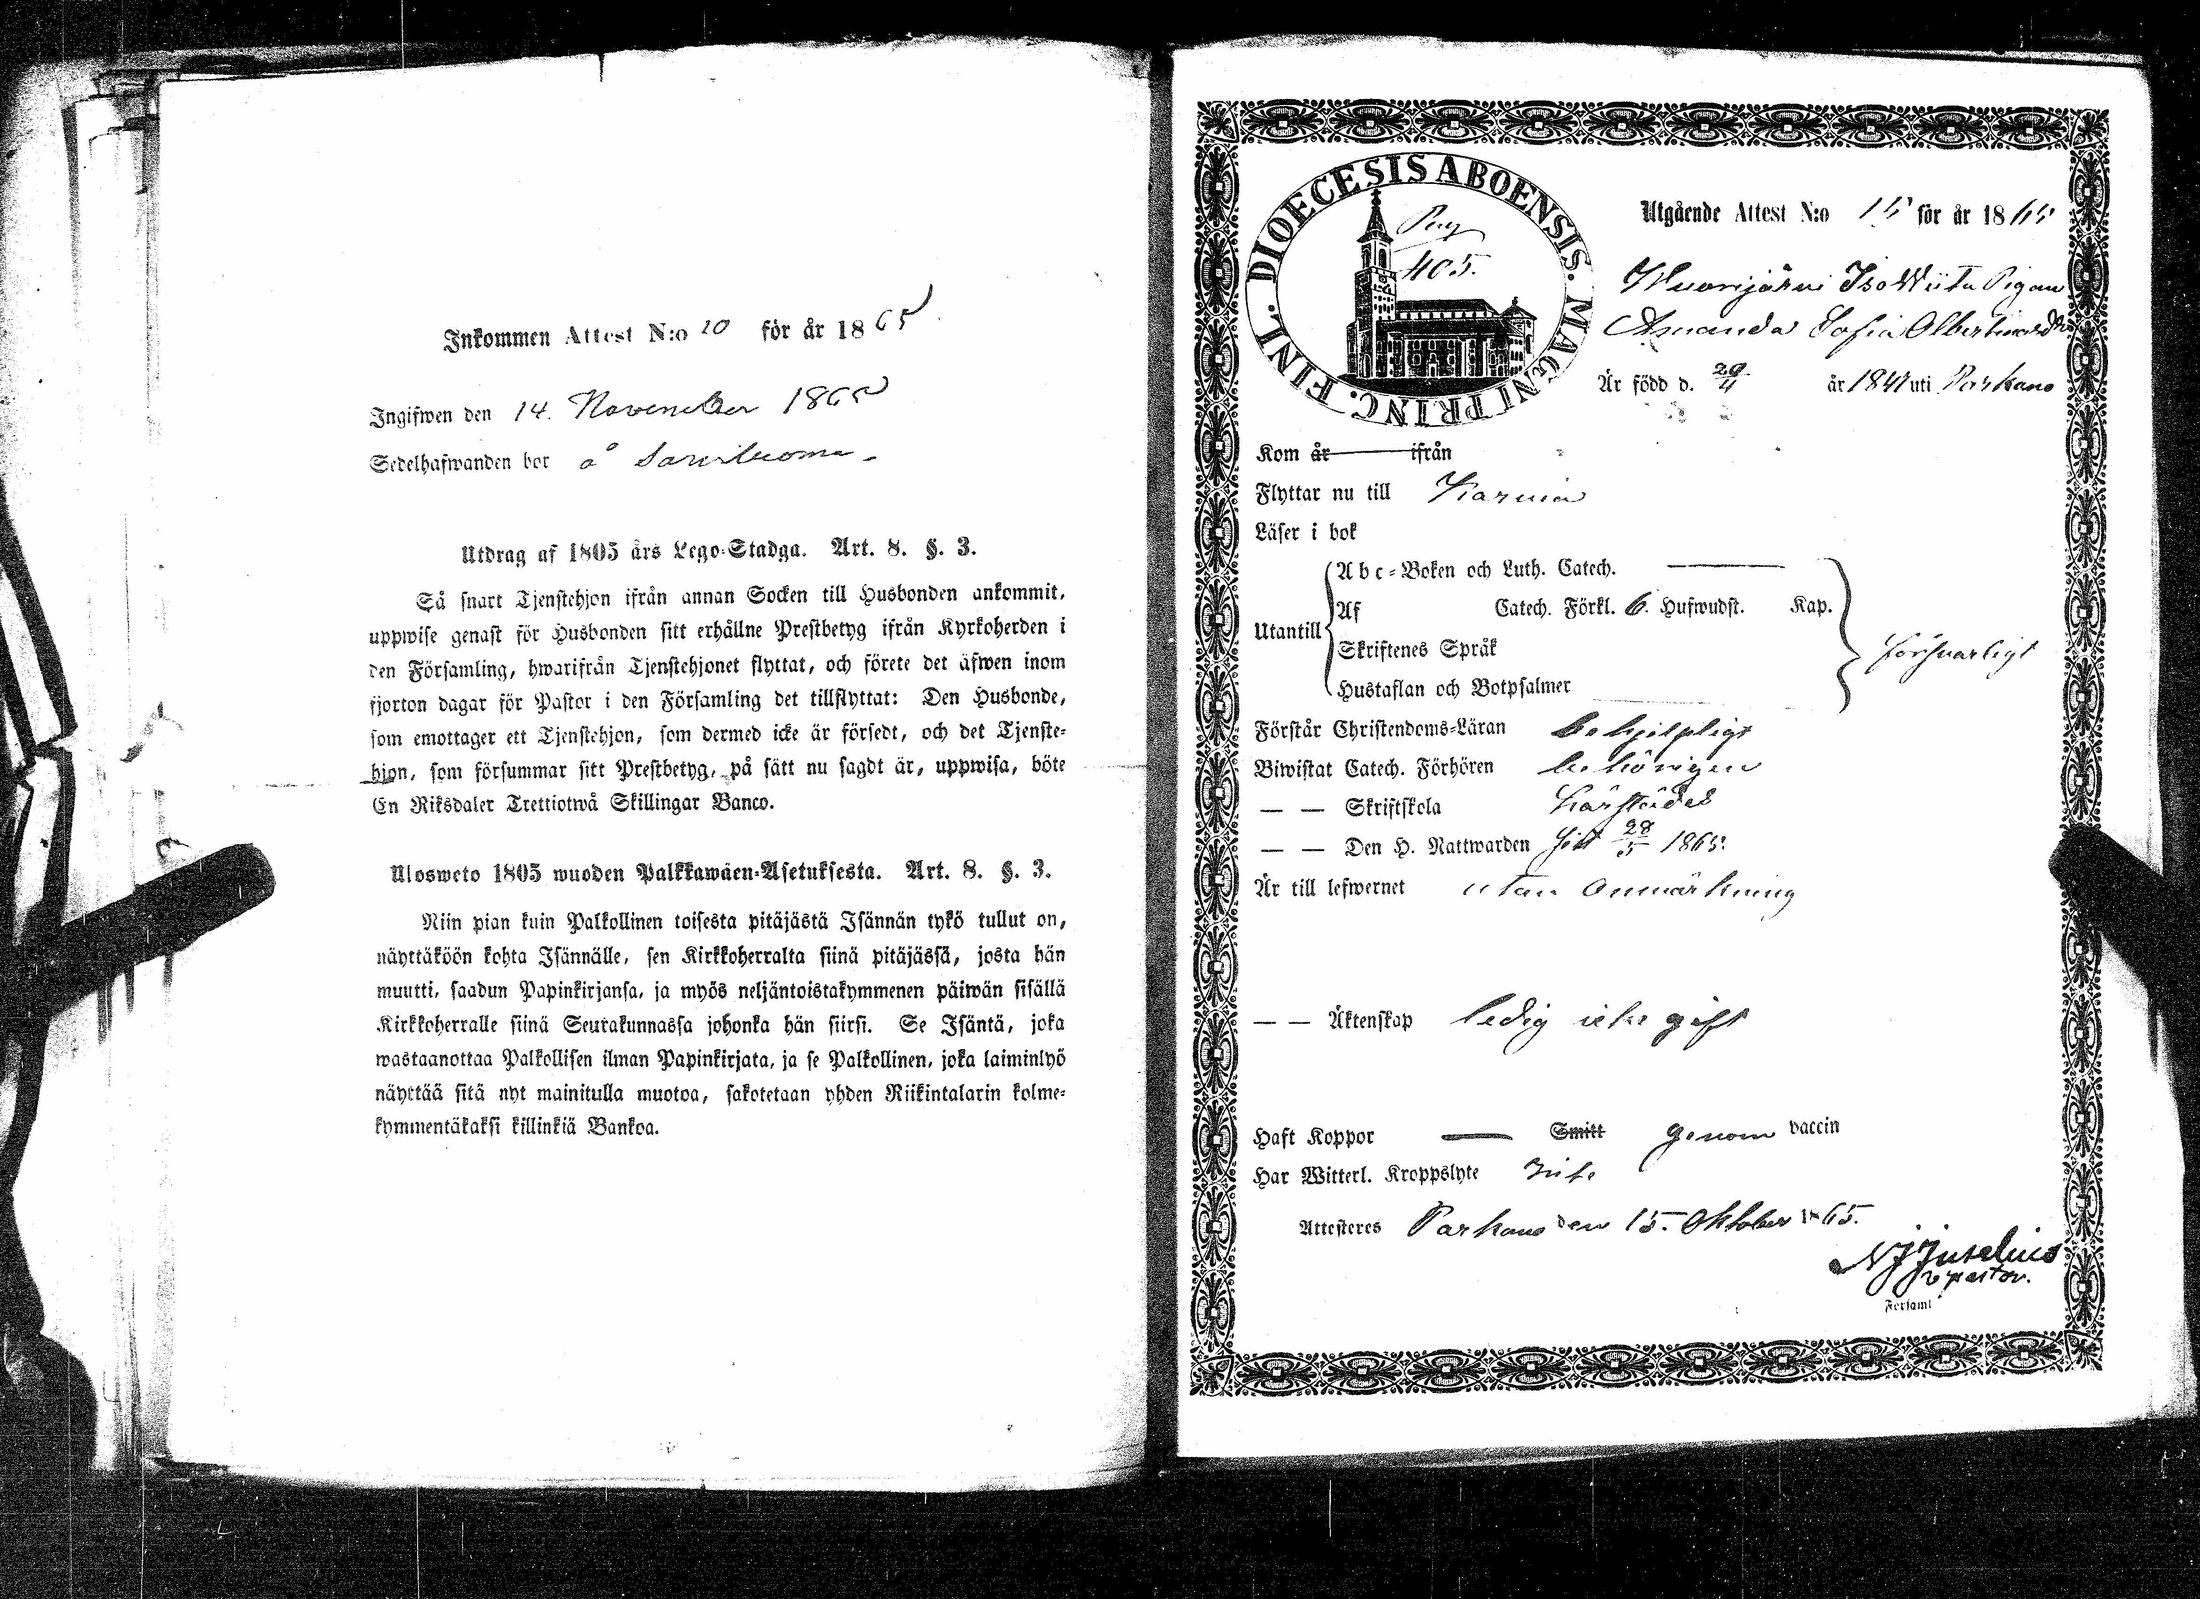 Inkommen Attest N:o 20 för år 1865
Ingifwen den 14. November 1865
Sedelhafwanden bor å Sarviluoma
Utdrag af 1805 års Lego-Stadga. Art. 8. §. 3.
Så snart Tjenstehjon ifrån annan Socken till Husbonden ankommit,
uppwise genast för Husbonden sitt erhållne Prestbetyg ifrån Kyrkoherden i
den Församling, hwarifrån Tjenstehjonet flyttat, och förete det äfwen inom
fjorton dagar för Pastor i den Församling det tillflyttat: Den Husbonde,
som emottager ett Tjenstehjon, som dermed icke är försedt, och det Tjenste-
hjon, som försummar sitt Prestbetyg, på sätt nu sagdt är, uppwisa, böte
En Riksdaler Trettiotwå Skillingar Banco.
Ulosweto 1805 wuoden Palkkawäen-Asetuksesta. Art. 8. §. 3.
Niin pian kuin Palkollinen toisesta pitäjästä Isännän tykö tullut on,
näyttäköön kohta Isännälle, sen Kirkkoherralta siinä pitäjässä, josta hän
muutti, saadun Papinkirjansa, ja myös neljäntoistakymmenen päiwän sisällä
Kirkkoherralle siinä Seurakunnassa johonka hän siirsi. Se Isäntä, joka
wastaanottaa Palkollisen ilman Papinkirjata, ja se Palkollinen, joka laiminlyö
näyttää sitä nyt mainitulla muotoa, sakotetaan yhden Riikintalarin kolme-
kymmentäkaksi killinkiä Bankoa.
DIOECESIS ABOENSIS. MAGNI PRINC. FINL.
Pag
405.
Utgående Attest N:o 15 för år 1865
Wuorijärvi IsoWiita Pigan
Amanda Sofia Albertina
Är född d. 29/11 år 1841 uti Parkano
Kom år ifrån
Flyttar nu till Karvia
Läser i bok
Utantill
Abc-Boken och Luth. Catech.
Af Catech. Förkl. 6. Hufwudst. Kap.
Skriftenes Språk
Hustaflan och Botpsalmer
försvarligt
Förstår Christendoms-Läran behjelpligt
Biwistat Catech. Förhören behörigen
— — Skriftskola
— — Den H. Nattwarden sist 28/5 1865.
Är till lefwernet utan anmärkning
— — Äktenskap ledig icke gift
Haft Koppor Smitt genom vaccin
Har Witterl. Kroppslyte Icke
Attesteres Parkano den 15. Oktober 1865.
NJ Juselius
v pastor.
Forsaml